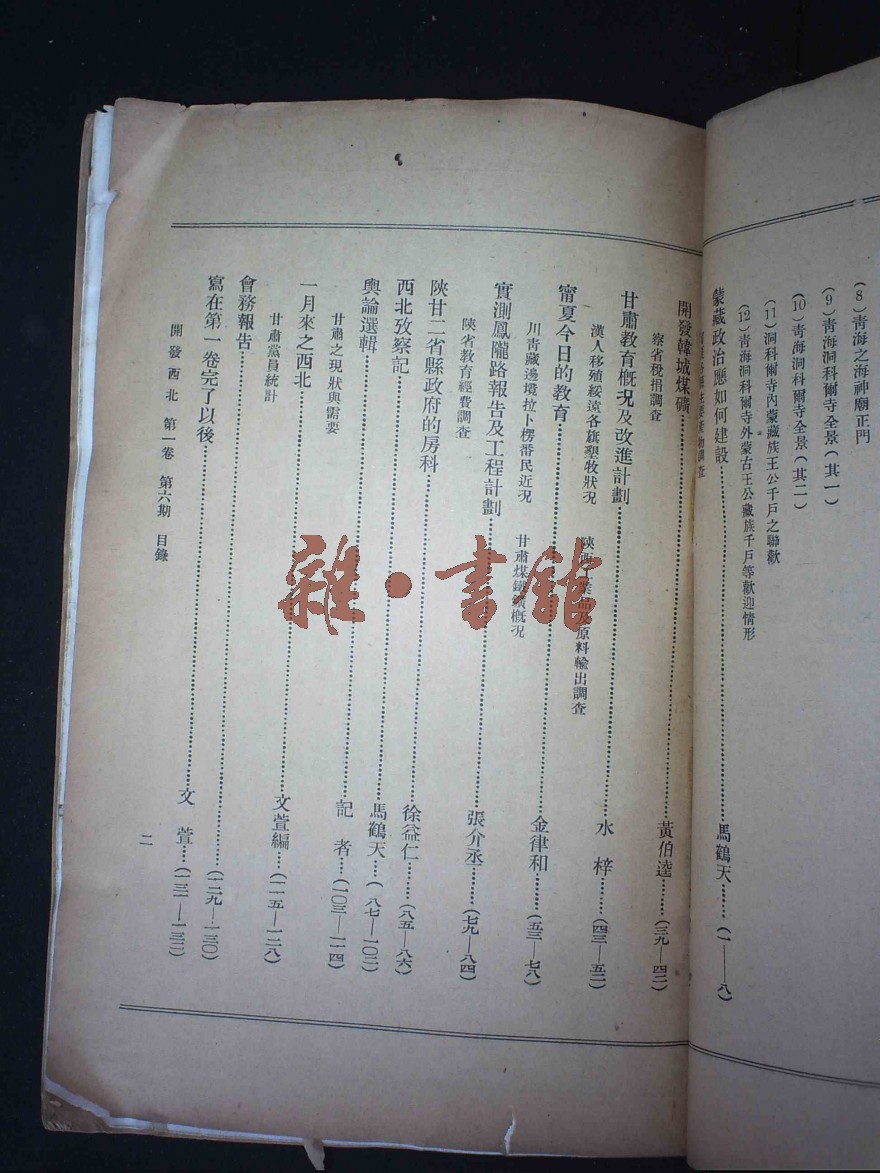 (8)青海之海神廟正門
(9)青海洞科爾寺全景(其一)
(10)青海洞科爾寺全景(其二)
(11)洞科爾寺內蒙藏族王公千戶之聯歡
(12)青海洞科爾寺外蒙古王公藏族千戶等歡迎情形
蒙藏政治應如何建設 馬鶴天 (一—八)
主要產物調查
開發韓城煤礦 黃伯逵 (三九—四二)
察省稅捐調查
甘肅教育槪況及改進計劃 水 梓 (四三—五二)
漢人移殖綏遠各旗墾牧狀況 陝西工業品及原料輸出調查
甯夏今日的教育 金律和 (五三—七八)
川青藏邊境拉卜楞番民近況 甘肅煤鐵鑛槪況
實測鳳隴路報告及工程計劃 張介丞 (七九—八四)
陝省教育經費調查
陝甘二省縣政府的房科 徐益仁 (八五—八六)
西北攷察記 馬鶴天 (八七—一〇二)
輿論選輯 記 者 (一〇三—一一四)
甘肅之現狀與需要
一月來之西北 文萱編 (一一五—一二八)
甘肅黨員統計
會務報告 (一二九—一三〇)
寫在第一卷完了以後 文 萱 (一三一—一三二)
開發西北 第一卷 第六期 目錄
二
雜·書館